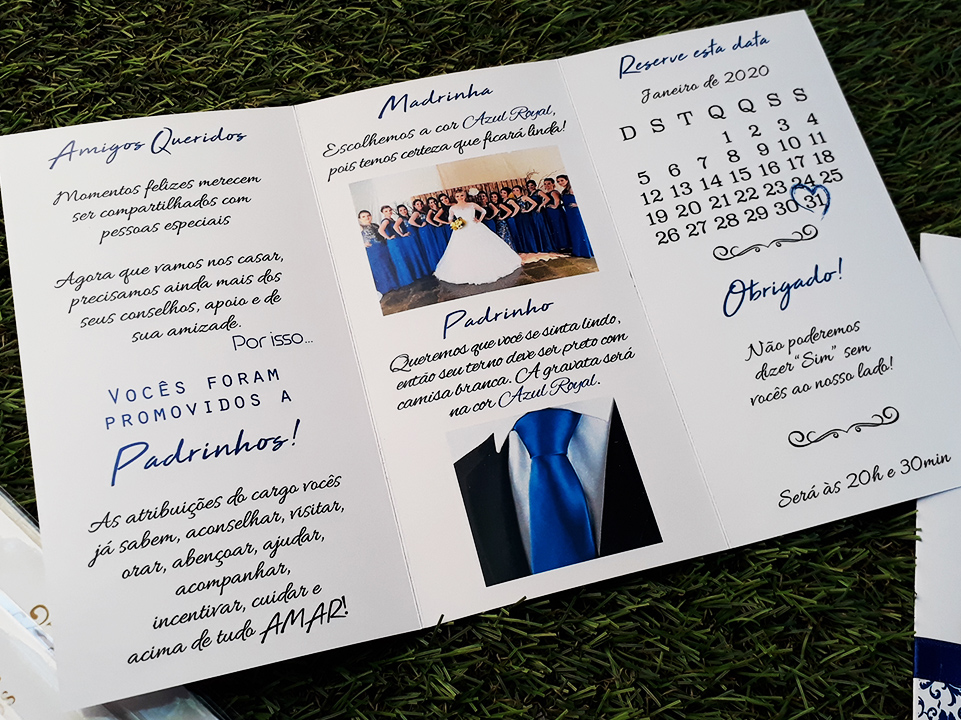 Amigos Queridos
Momentos felizes merecem
ser compartilhados com
pessoas especiais
Agora que vamos nos casar,
precisamos ainda mais dos
seus conselhos, apoio e de
sua amizade.
Por isso...
VOCÊS FORAM
PROMOVIDOS A
Padrinhos!
As atribuições do cargo vocês
já sabem, aconselhar, visitar,
orar, abençoar, ajudar,
acompanhar,
incentivar, cuidar e
acima de tudo AMAR!
Madrinha
Escolhemos a cor Azul Royal,
pois temos certeza que ficará linda!
Padrinho
Queremos que você se sinta lindo,
então seu terno deve ser preto com
camisa branca. A gravata será
na cor Azul Royal.
Reserve esta data
Janeiro de 2020
D S T Q Q S S
1 2 3 4
5 6 7 8 9 10 11
12 13 14 15 16 17 18
19 20 21 22 23 24 25
26 27 28 29 30 31
Obrigado!
Não poderemos
dizer “Sim” sem
vocês ao nosso lado!
Será às 20h e 30min